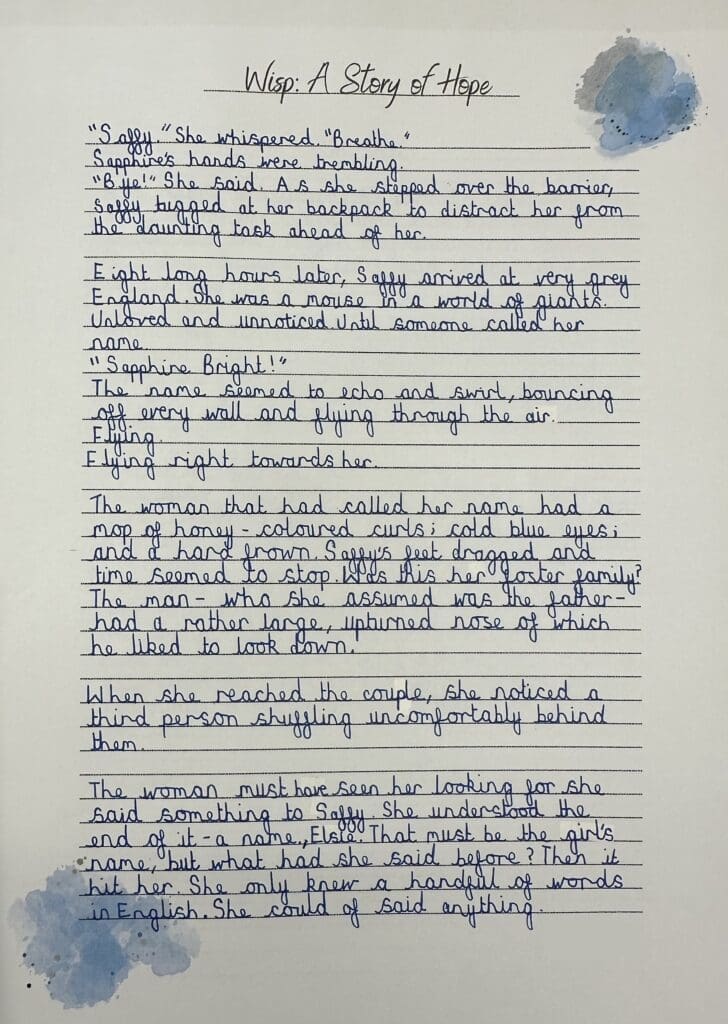 Wisp: A Story of Hope
"Saffy." She whispered. "Breathe."
Sapphire's hands were trembling.
"Bye!" She said. As she stepped over the barrier,
Saffy tugged at her backpack to distract her from
the daunting task ahead of her.
Eight long hours later, Saffy arrived at very grey
England. She was a mouse in a world of giants.
Unloved and unnoticed. Until someone called her
name
"Sapphire Bright!"
The name seemed to echo and swirl, bouncing
off every wall and flying through the air.
Flying.
Flying right towards her.
The woman that had called her name had a
mop of honey-coloured curls; cold blue eyes;
and a hard frown. Saffy's feet dragged and
time seemed to stop. Was this her foster family?
The man - who she assumed was the father -
had a rather large, upturned nose of which
he liked to look down.
When she reached the couple, she noticed a
third person shuffling uncomfortably behind
them.
The woman must have seen her looking for she
said something to Saffy. She understood the
end of it - a name, Elsie. That must be the girl's
name, but what had she said before? Then it
hit her. She only knew a handful of words
in English. She could of said anything.